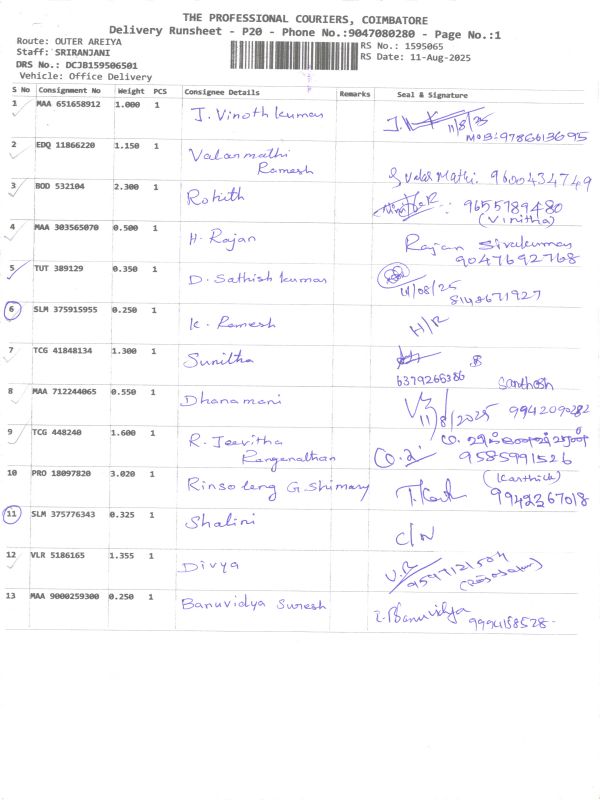 THE PROFESSIONAL COURIERS, COIMBATORE
Delivery Runsheet - P20 - Phone No.:9047080280 - Page No.:1
Route: OUTER AREIYA
RS No.: 1595065
Staff: SRIRANJANI
RS Date: 11-Aug-2025
DRS No.: DCJB159506501
Vehicle: Office Delivery
S No Consignment No Weight PCS Consignee Details Remarks Seal & Signature
1 MAA 651658912 1.000 1 J. Vinoth kumar 11/8/25
MOB:9786613695
2 EDQ 11866220 1.150 1 Valarmathi
Ramesh
S Valar Mathi. 9600434749
3 BOD 532104 2.300 1 Rohith 9655789480
(Vinitha)
4 MAA 303565070 0.500 1 H. Rajan Rajan Sivakumar
9047692768
5 TUT 389129 0.350 1 D. Sathish kumar
11/08/25 8148671927
6 SLM 375915955 0.250 1 K. Ramesh H/R
7 TCG 41848134 1.300 1 Sunitha
6379266386 Santhosh
8 MAA 712244065 0.550 1 Dhanamani 11/8/2025 9942090282
9 TCG 448240 1.600 1 R. Jeevitha
Ranganathan
9585991526
10 PRO 18097820 3.020 1 Rinso leng G Shimary (Karthick)
9942367018
11 SLM 375776343 0.325 1 Shalini C/N
12 VLR 5186165 1.355 1 Divya V.R
9597121504
13 MAA 9000259300 0.250 1 Banuvidya Suresh Banuvidya
9994158528